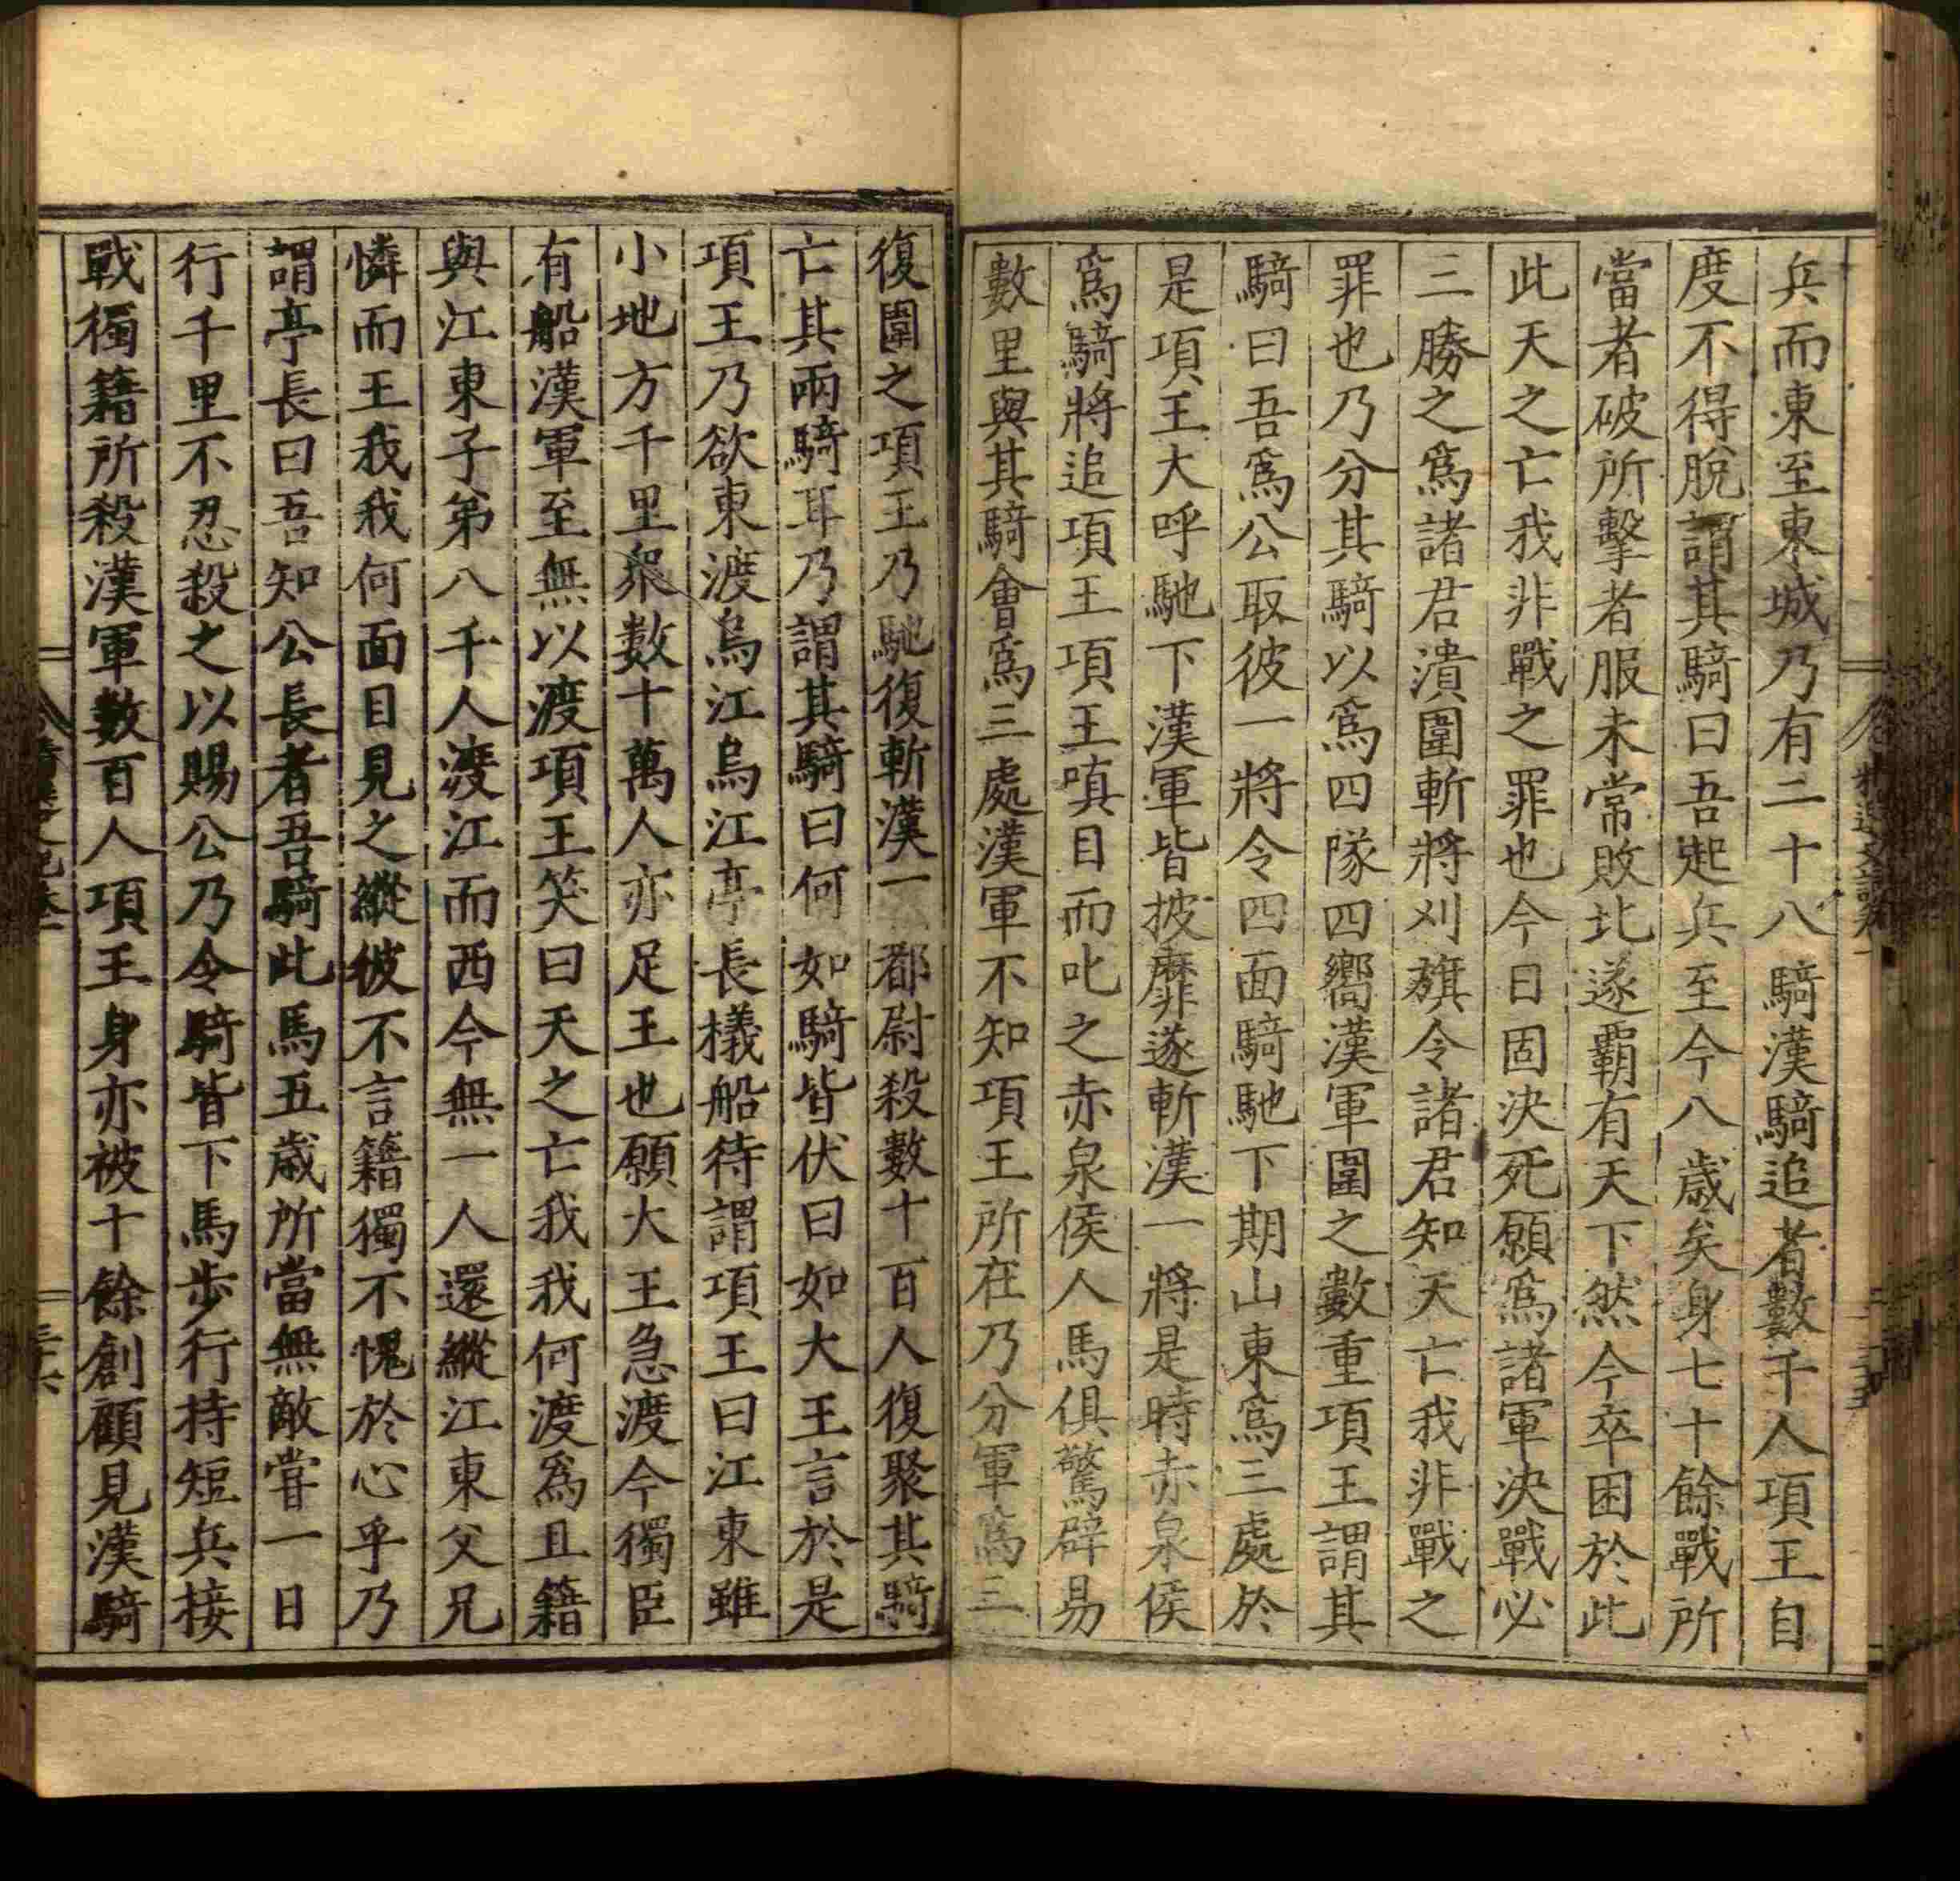 兵而東至東城乃有二十八騎漢騎追者數千人項王自
度不得脫謂其騎曰吾起兵至今八歲矣身七十餘戰所
當者破所擊者服未常敗北遂霸有天下然今卒困於此
此天之亡我非戰之罪也今日固決死願爲諸軍決戰必
三勝之爲諸君潰圍斬將刈旗令諸君知天亡我非戰之
罪也乃分其騎以爲四隊四嚮漢軍圍之數重項王謂其
騎曰吾爲公取彼一將令四面騎馳下期山東爲三處於
是項王大呼馳下漢軍皆披靡遂斬漢一將是時赤泉侯
爲騎將追項王項王嗔目而叱之赤泉侯人馬俱驚辟易
數里與其騎會爲三處漢軍不知項王所在乃分軍爲三
復圍之項王乃馳復斬漢一都尉殺數十百人復聚其騎
亡其兩騎耳乃謂其騎曰何如騎皆伏曰如大王言於是
項王乃欲東渡烏江烏江亭長檥船待謂項王曰江東雖
小地方千里衆數十萬人亦足王也願大王急渡今獨臣
有船漢軍至無以渡項王笑曰天之亡我我何渡爲且籍
與江東子弟八千人渡江而西今無一人還縱江東父兄
憐而王我我何面目見之縱彼不言籍獨不愧於心乎乃
謂亭長曰吾知公長者吾騎此馬五歲所當無敵嘗一日
行千里不忍殺之以賜公乃令騎皆下馬步行持短兵接
戰獨籍所殺漢軍數百人項王身亦被十餘創顧見漢騎